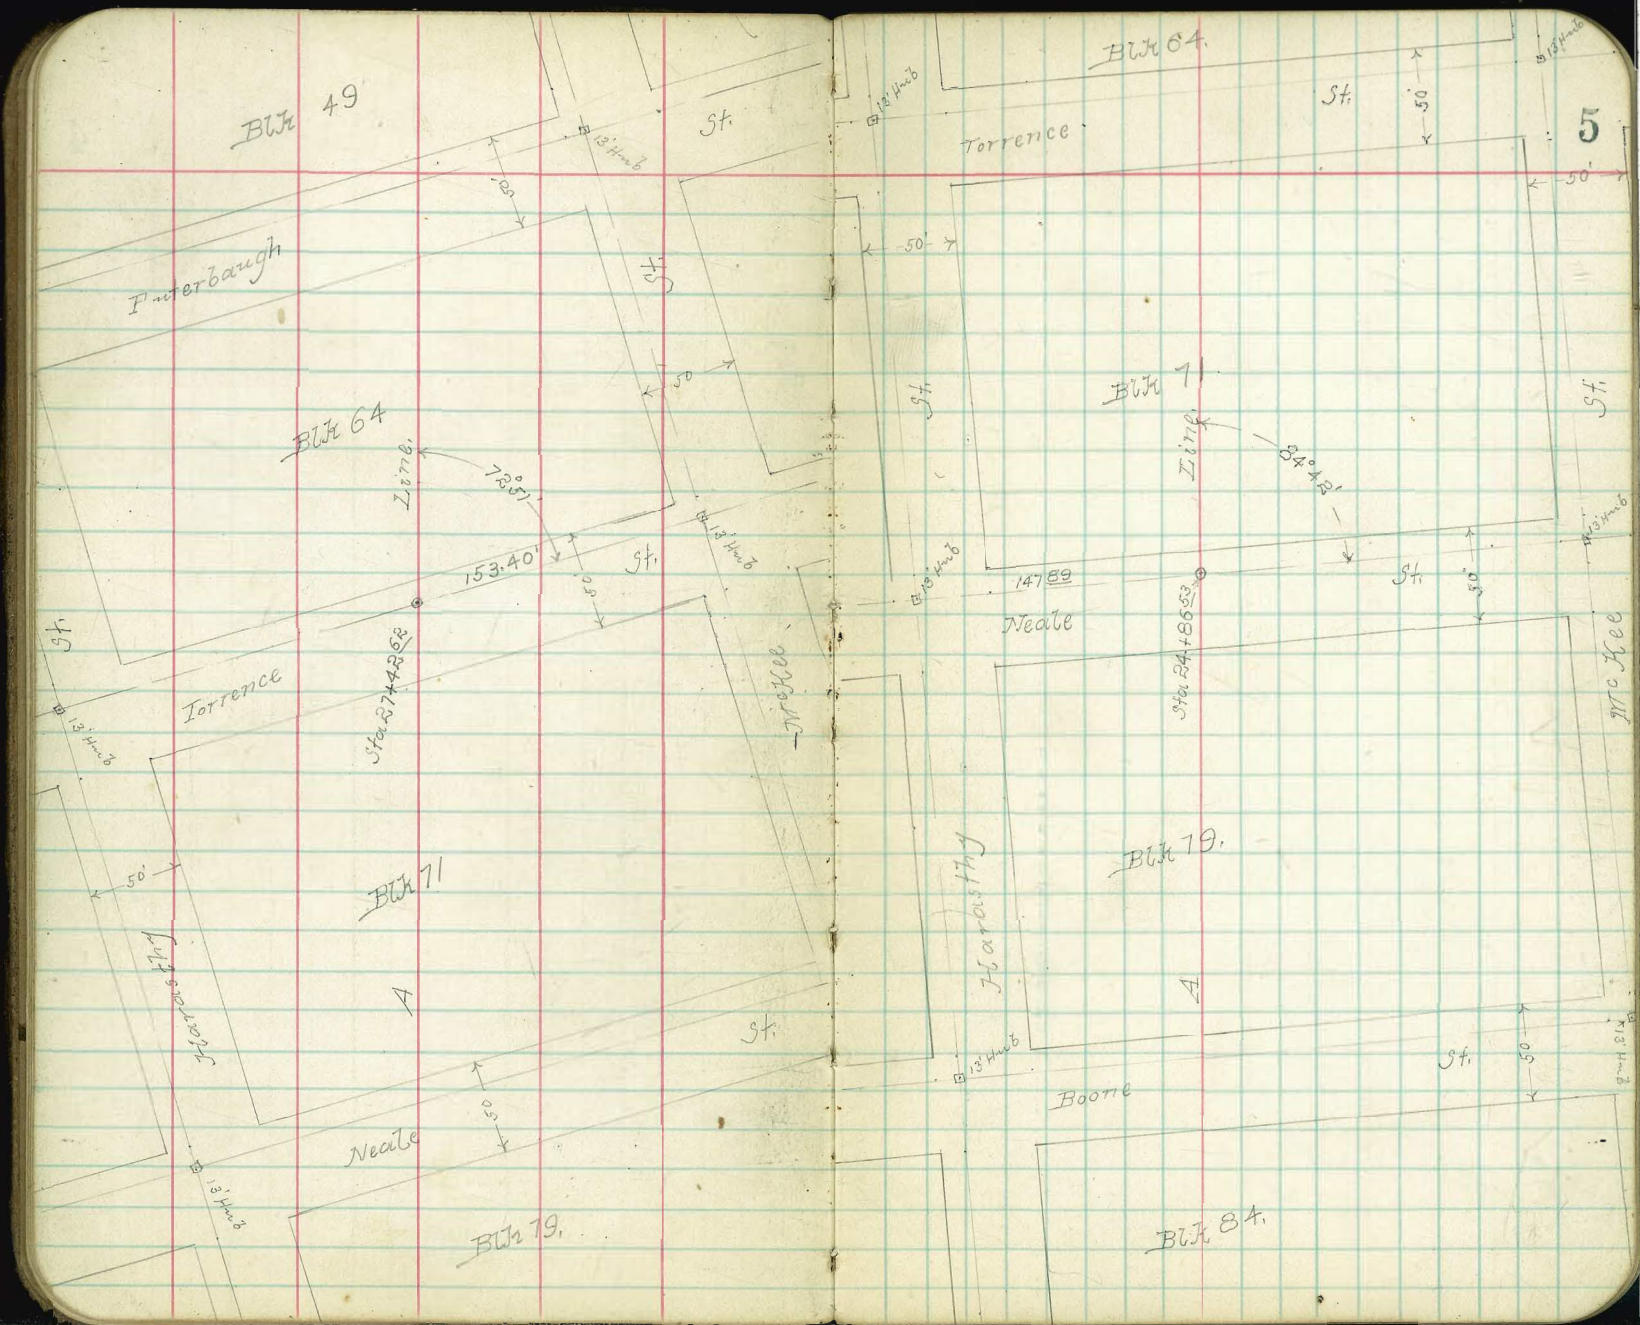 Blk 49
St.
13' Hub
50'
Puterbaugh
St.
50
Blk 64
Line.
72°51'
13' Hub
153.40'
St.
50'
St.
Sta 27+42 62
Torrence
McKee
13' Hub
50'
Blk 71
Harasthy
A
St.
50'
Neale
13' Hub
Blk 79.
Blk 64.
13' Hub
13' Hub
St.
50'
5
Torrence
50'
50'
St.
Blk 71
St.
Line.
84°42'
13' Hub
13' Hub
147 89
St.
50'
Neale
Sta 24+86 53
Mc Kee
Blk 79.
Harasthy
A
13' Hub
St.
50'
13' Hub
Boone
Blk 84.